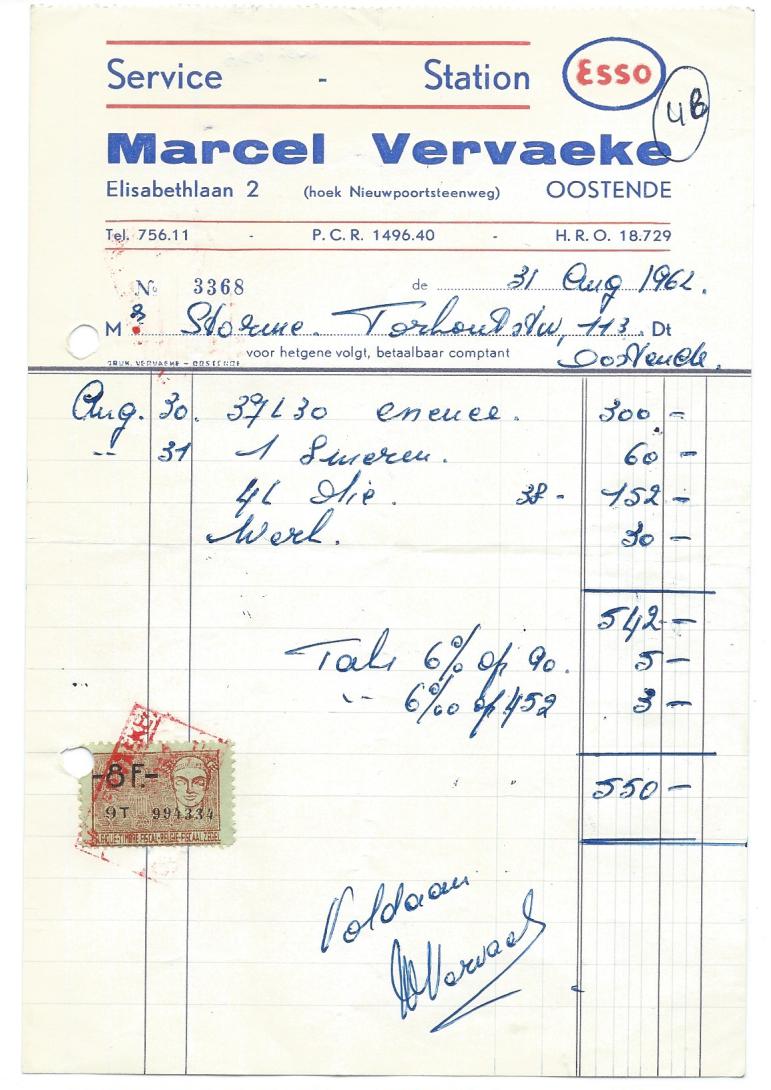 Service - Station
Esso
4B
Marcel Vervaeke
Elisabethlaan 2 (hoek Nieuwpoortsteenweg) OOSTENDE
Tel. 756.11 - P.C.R. 1496.40 - H.R.O. 18.729
No 3368 de 31 Aug 1962.
M Storme. Torhoutstw, 113. Dt
voor hetgene volgt, betaalbaar comptant Oostende.
DRUK. VERVAEKE - OOSTENDE
Aug. 30. 37L30 encence. 300 -
-- 31 1 Smeren. 60 -
4L Olie. 38 - 152 -
Werk. 30 -
542 -
Taks 6% op 90. 5 -
-- 6‰ op 452 3 -
-8F.-
9T 994334
BELGIQUE-TIMBRE FISCAL-BELGIE-FISCAALZEGEL
550 -
Voldaan
MVervaeke